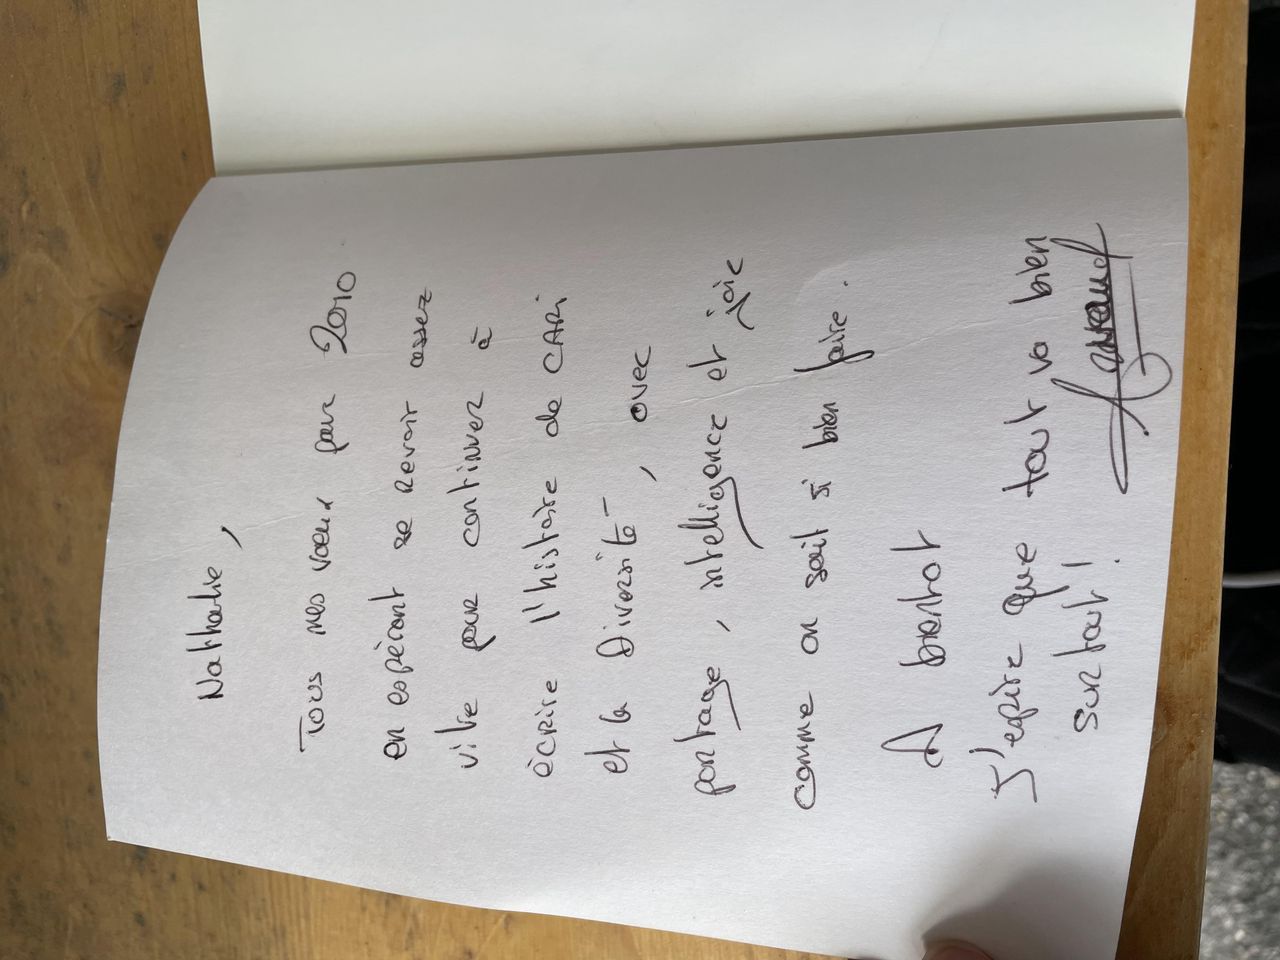 Nathalie,
Tous mes voeux pour 2010
en espérant se revoir assez
vite pour continuer à
écrire l'histoire de CARi
et la Diversité, avec
partage, intelligence et joie
comme on sait si bien faire.
A bientot
J'espère que tout va bien
surtout!